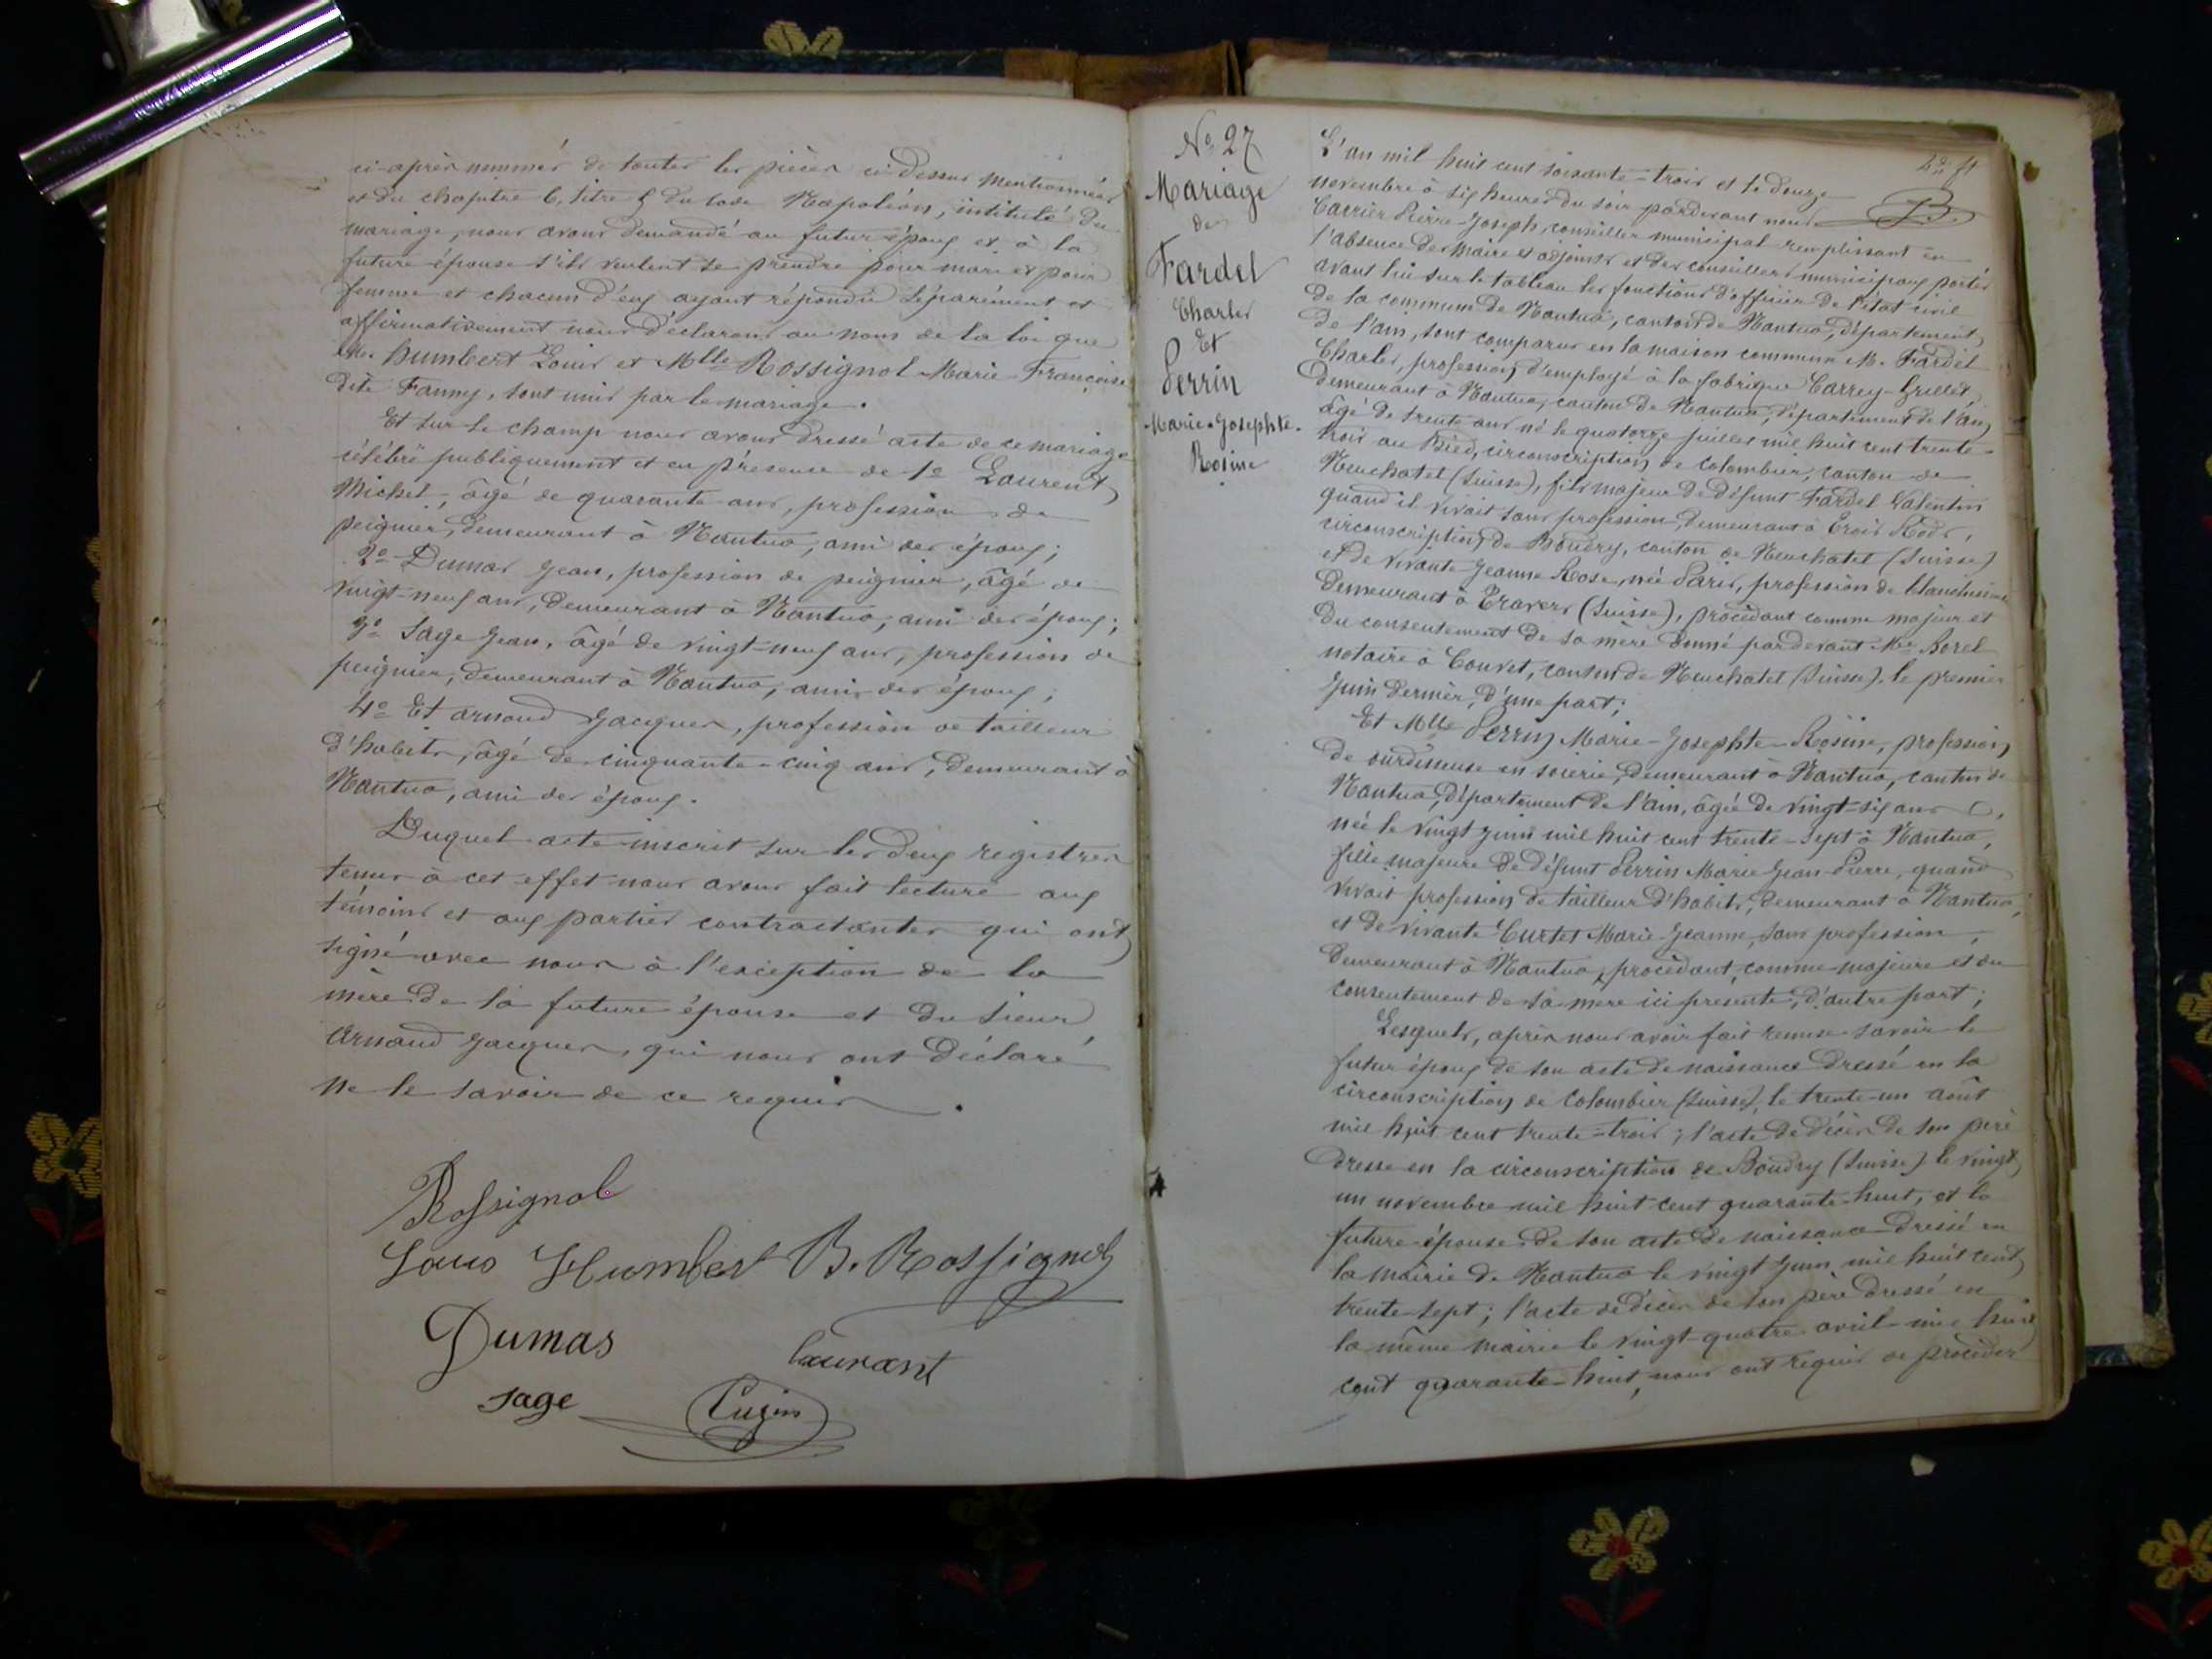 ci-après nommés de toutes les pièces ci-dessus mentionnées
et du chapitre 6, titre 5 du code Napoléon, intitulé du
mariage, nous avons demandé au futur époux et à la
future épouse s'ils veulent se prendre pour mari et pour
femme et chacun d'eux ayant répondu séparément et
affirmativement nous déclarons au nom de la loi que
M. humbert Louis et Mlle Rossignol Marie Françoise
dite Fanny, sont unis par le mariage.
Et sur le champ nous avons dressé acte de ce mariage
célébré publiquement et en présence de 1o Laurent
Michel, âgé de quarante ans, profession de
peignier, demeurant à Nantua, ami des époux;
2o Dumas Jean, profession de peignier, âgé de
vingt-neuf ans, demeurant à Nantua, ami des époux;
3o Sage Jean, âgé de vingt-neuf ans, profession de
peignier, demeurant à Nantua, ami des époux;
4o Et arnaud Jacques, profession de tailleur
d'habits, âgé de cinquante-cinq ans, demeurant à
Nantua, ami des époux.
Duquel acte inscrit sur les deux registres
tenus à cet effet nous avons fait lecture aux
témoins et aux parties contractantes qui ont
signé avec nous à l'exception de la
mère de la future épouse et du sieur
Arnaud Jacques, qui nous ont déclaré
ne le savoir de ce requis.
Rossignol
Louis Humbert B. Rossignol
Dumas laurant
sage Cuzin
No 27
Mariage
de
Fardel
Charles
Et
Perrin
Marie-Josephte-
Rosine
B.
L'an mil huit cent soixante-trois et le douze
novembre à six heures du soir pardevant nous
Carrier Pierre-Joseph, conseiller municipal remplissant en
l'absence des Maire et adjoints et des conseillers municipaux portés
avant lui sur le tableau les fonctions d'officier de l'état civil
de la commune de Nantua, canton de Nantua, département
de l'ain, sont comparus en la maison commune M. Fardel
Charles, profession d'employé à la fabrique Carrey-Grillet,
demeurant à Nantua, canton de Nantua, département de l'ain
âgé de trente ans né le quatorze juillet mil huit cent trente-
trois au Bied, circonscription de colombier, canton de
Neuchatel (Suisse), fils majeur de défunt Fardel Valentin
quand il vivait sans profession, demeurant à Trois Rods,
circonscription de Boudry, canton de Neuchatel (Suisse)
et de vivante Jeanne Rose, née Paris, profession de blanchisseuse
demeurant à Travers (Suisse), procédant comme majeur et
du consentement de sa mère donné pardevant Me Borel
notaire à Couvet, canton de Neuchatel (Suisse) le premier
Juin dernier, d'une part;
Et Mlle Perrin Marie-Josephte-Rosine, profession
de ourdisseuse en soierie, demeurant à Nantua, canton de
Nantua, département de l'ain, âgée de vingt-six ans,
née le vingt juin mil huit cent trente-sept à Nantua,
fille majeure de défunt Perrin Marie Jean-Pierre, quand
vivait profession de tailleur d'habits, demeurant à Nantua,
et de vivante Curtet Marie-Jeanne, sans profession,
demeurant à Nantua, procédant comme majeure et du
consentement de sa mère ici présente, d'autre part;
Lesquels, après nous avoir fait remise savoir le
futur époux de son acte de naissance dressé en la
circonscription de Colombier (Suisse), le trente-un août
mil huit cent trente-trois; l'acte de décès de son père
dressé en la circonscription de Boudry (Suisse) le vingt
un novembre mil huit cent quarante-huit, et la
future épouse de son acte de naissance dressé en
la mairie de Nantua le vingt juin mil huit cent
trente-sept; l'acte de décès de son père dressé en
la même mairie le vingt-quatre avril mil huit
cent quarante-huit, nous ont requis de procéder